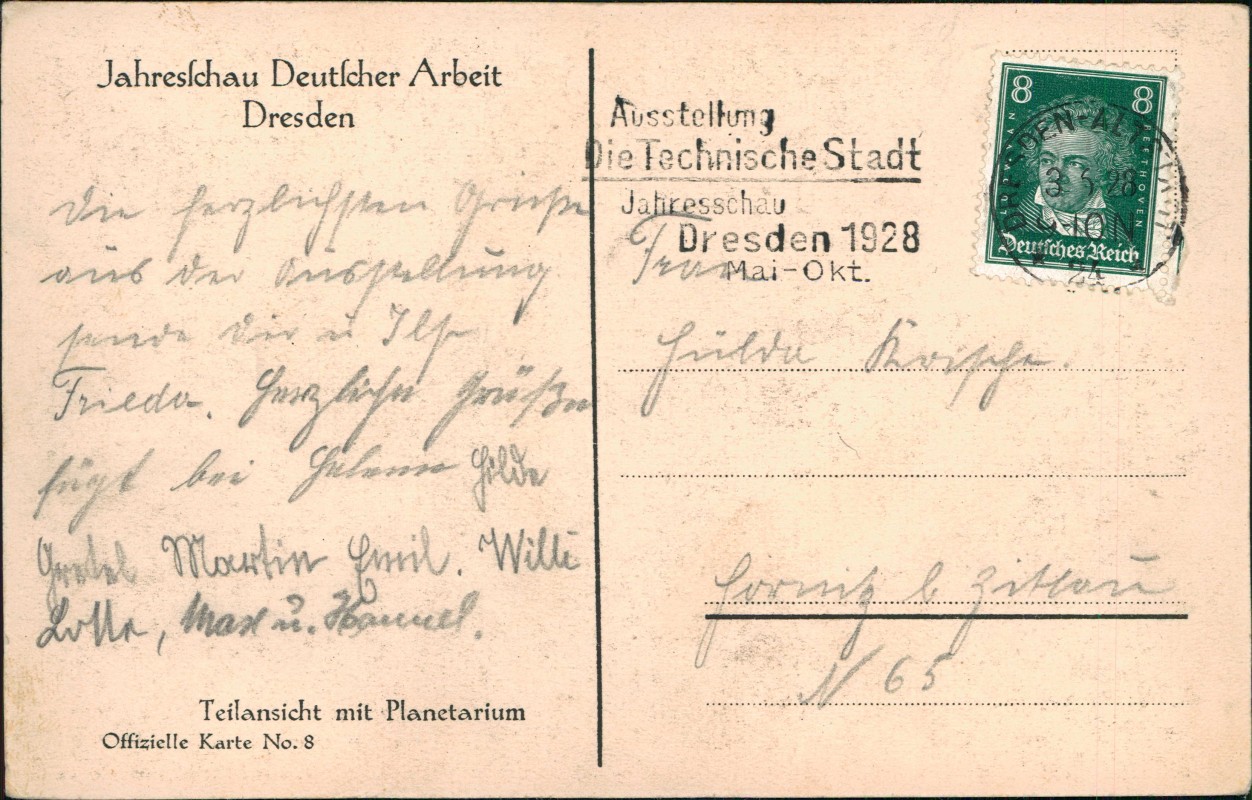 Jahresſchau Deutſcher Arbeit
Dresden
die herzlichsten Grüße
aus der Ausstellung
sende Dir u Ilse
Frieda. Herzliche Grüße
fügt bei Helene Hilde
Gretel Martin Emil. Willi
Lotte, Max u. Hannel.
Teilansicht mit Planetarium
Offizielle Karte No. 8
Ausstellung
Die Technische Stadt
Jahresschau
Dresden 1928
Mai-Okt.
8 8
LUDWIG VAN BEETHOVEN
Deutſches Reich
DRESDEN-ALTST.
3.5.28
9-10 N
24
Frau
Hulda Krische.
Hörnitz b Zittau
N 65